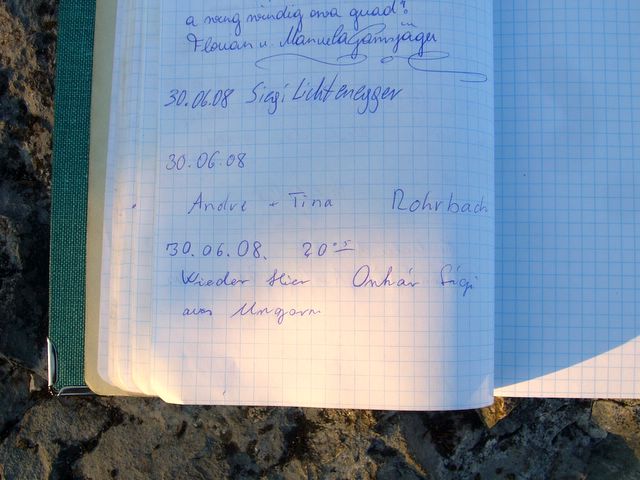 a weng windig owa guad!
Florian u. Manuela Gamsjäger
30.06.08 Siegi Lichtenegger
30.06.08
Andre + Tina Rohrbach
30.06.08. 20⁰⁵
Wieder Hier Onhár Sigi
aus Ungarn